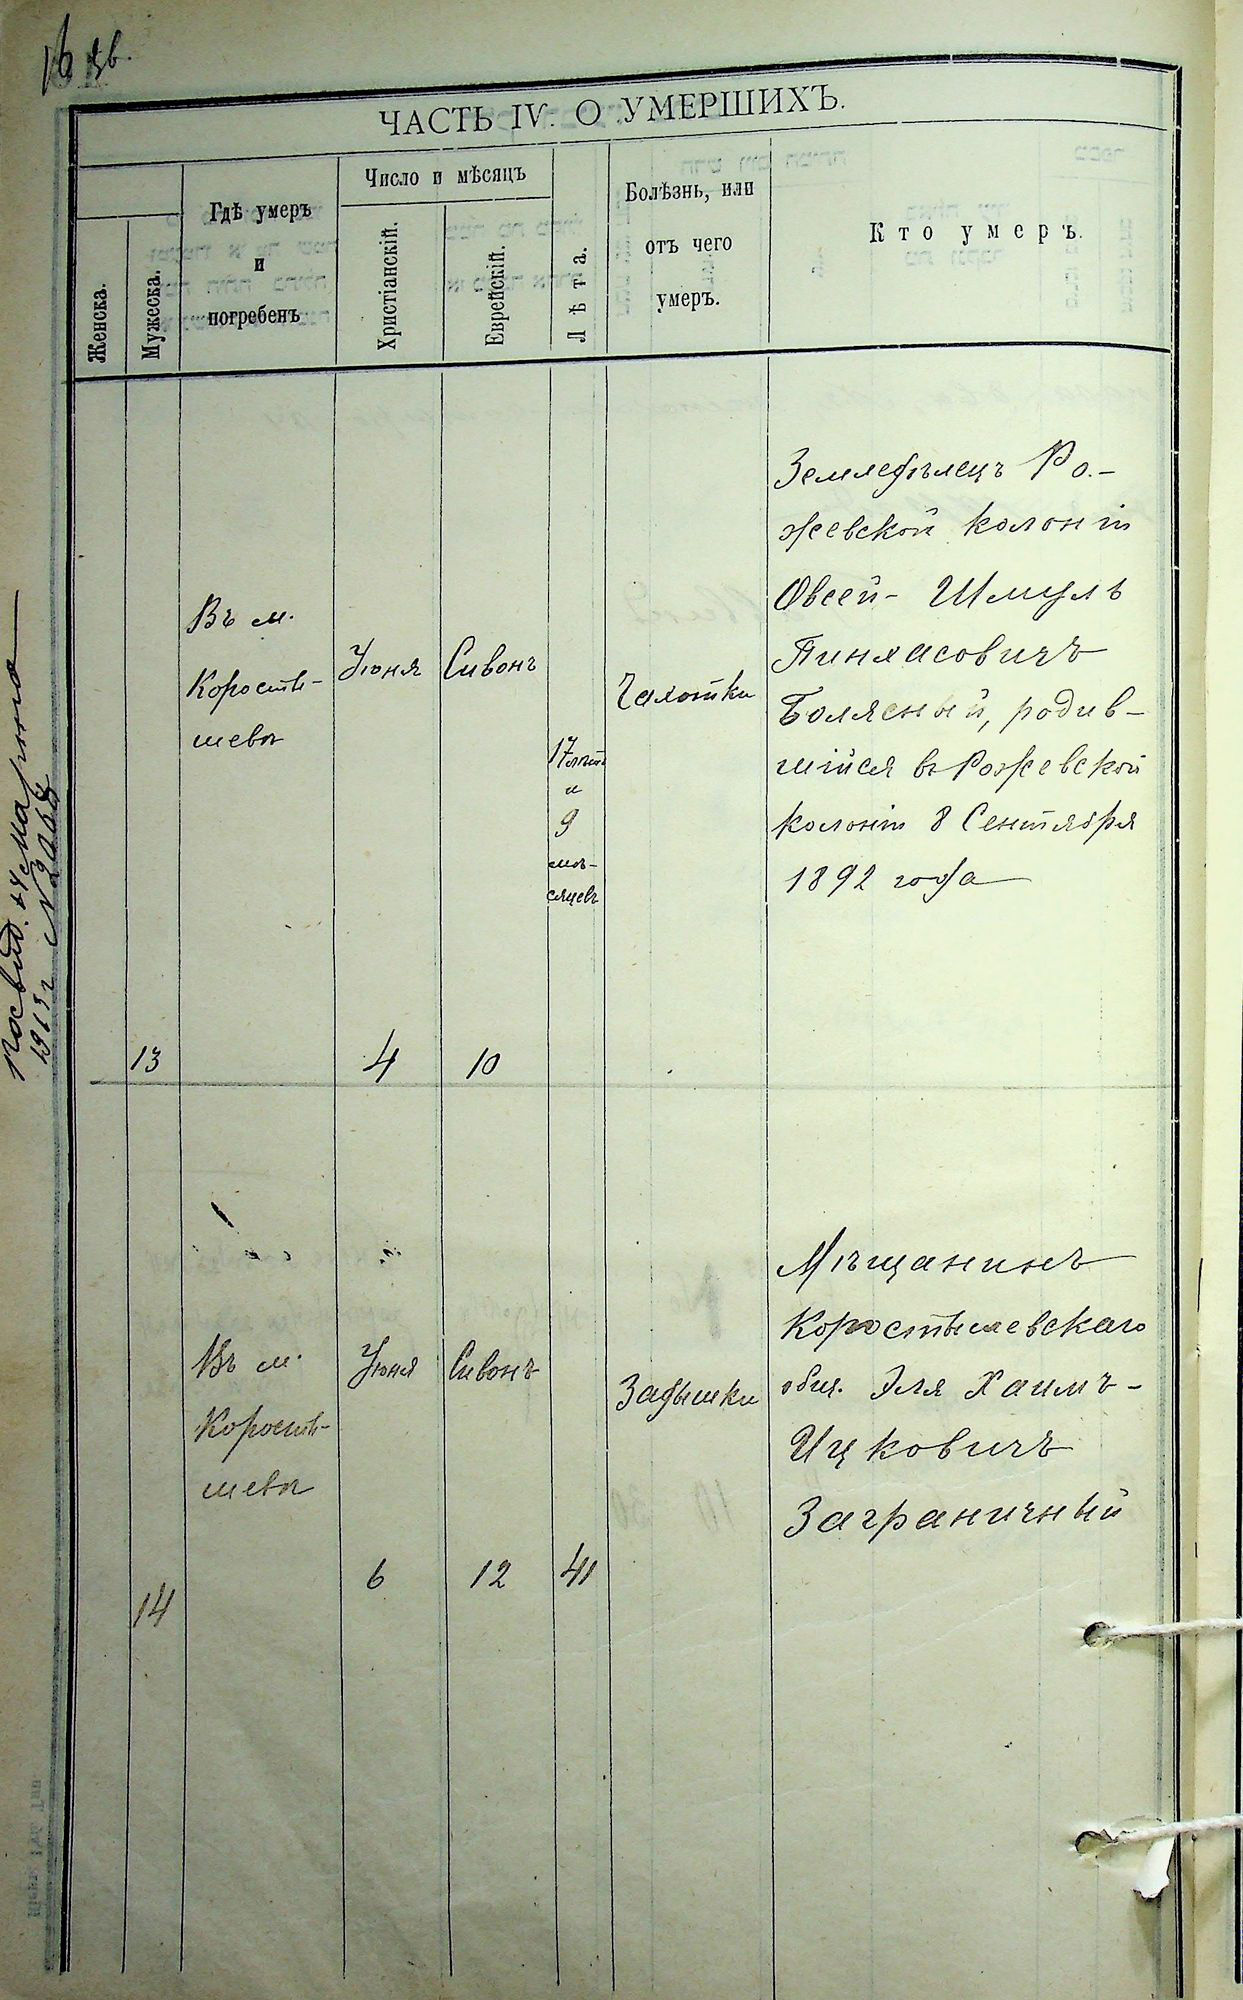 16
ЧАСТЬ IV. О УМЕРШИХЪ.
Женска.
Мужеска.
Гдѣ умеръ
и
погребенъ
Число и мѣсяцъ
Христіанскій.
Еврейскій.
Лѣта.
Болѣзнь, или
отъ чего
умеръ.
Кто умеръ.
13
Въ м.
Коросты-
шевѣ
Іюня
4
Сивонъ
10
17 лѣтъ
и
9
мѣ-
сяцевъ
Чахотки
Земледѣлецъ Ро-
жевской колоніи
Овсей-Шмуль
Пинхасовичъ
Болясный, родив-
шійся въ Рожевской
колоніи 8 Сентября
1892 года
14
Въ м.
Коросты-
шевѣ
Іюня
6
Сивонъ
12
41
Задышки
Мѣщанинъ
Коростышевскаго
общ. Эля Хаимъ-
Ицковичъ
Заграничный
1913 г. №2068